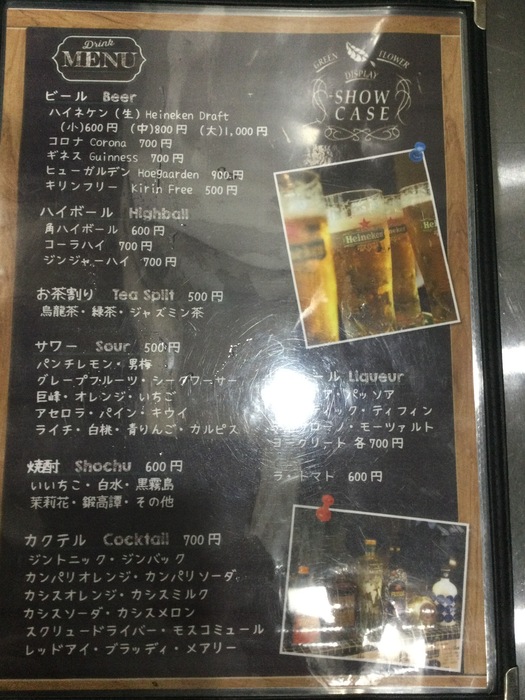 Drink
MENU
GREEN FLOWER
DISPLAY
SHOW
CASE
ビール Beer
ハイネケン(生) Heineken Draft
(小)600円 (中)800円 (大)1,000円
コロナ Corona 700円
ギネス Guinness 700円
ヒューガルデン Hoegaarden 900円
キリンフリー Kirin Free 500円
ハイボール Highball
角ハイボール 600円
コーラハイ 700円
ジンジャーハイ 700円
お茶割り Tea Split 500円
烏龍茶・緑茶・ジャズミン茶
サワー Sour 500円
パンチレモン・男梅
グレープフルーツ・シークワーサー
巨峰・オレンジ・いちご
アセロラ・パイン・キウイ
ライチ・白桃・青りんご・カルピス
焼酎 Shochu 600円
いいちこ・白水・黒霧島
茉莉花・鍛高譚・その他
カクテル Cocktail 700円
ジントニック・ジンバック
カンパリオレンジ・カンパリソーダ
カシスオレンジ・カシスミルク
カシスソーダ・カシスメロン
スクリュードライバー・モスコミュール
レッドアイ・ブラッディ・メアリー
Heineken
ール Liqueur
ア・パッソア
ック・ティフィン
ーノ・モーツァルト
ヨーグリート 各700円
トマト 600円